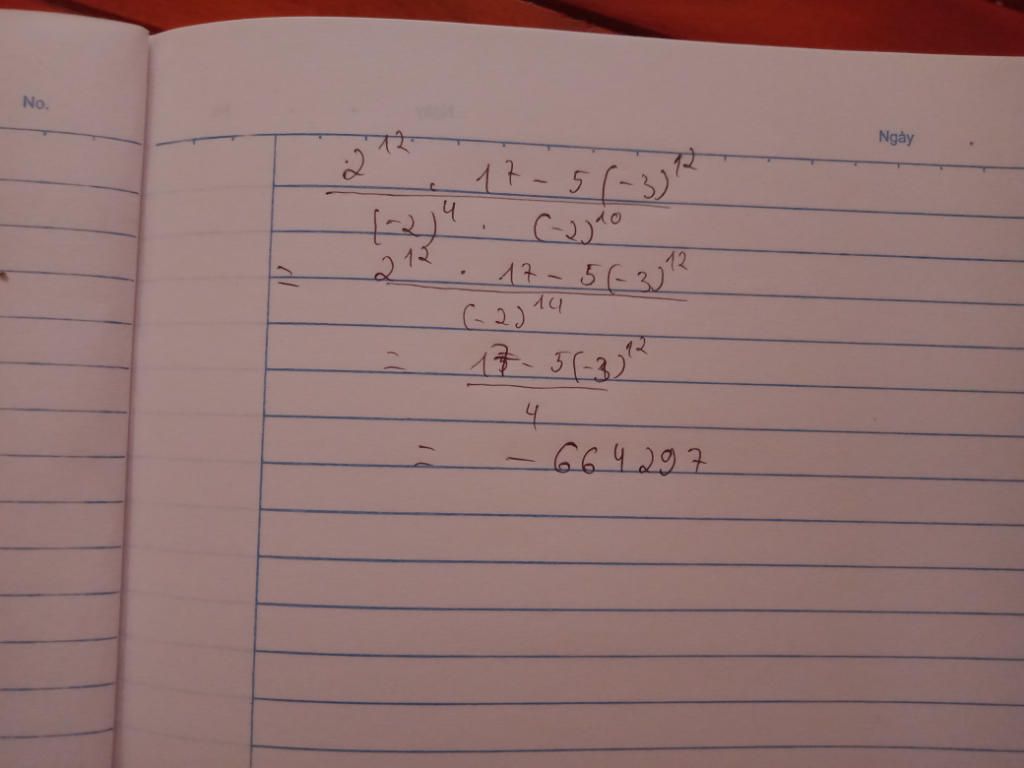 No.
Ngày
2^12 . 17 - 5(-3)^12
(-2)^4 . (-2)^10
= 2^12 . 17 - 5(-3)^12
(-2)^14
= 17 - 5(-3)^12
4
= - 664297